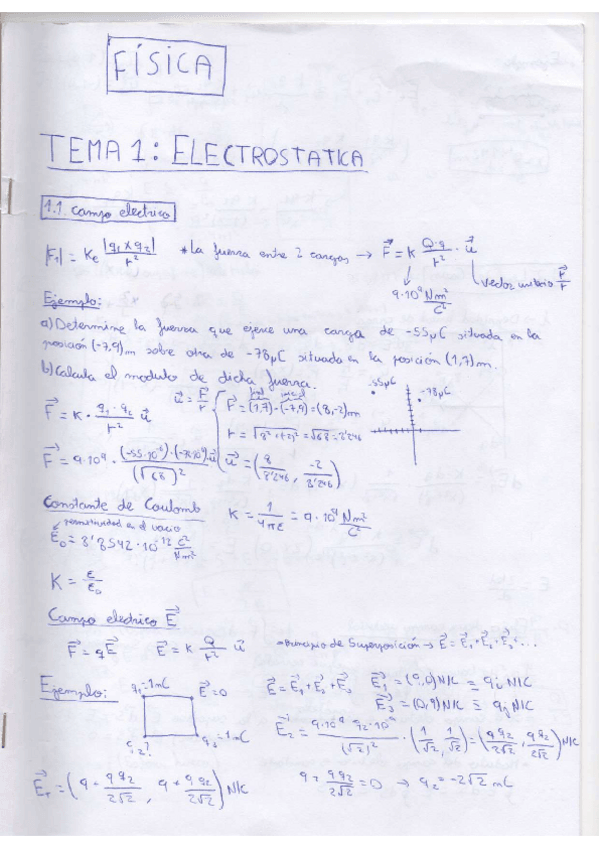 FÍSICA
TEMA 1: ELECTROSTATICA
1.1. campo electrico
|F₁| = Ke |q₁ x q₂| / r² * La fuerza entre 2 cargas → F⃗ = K Q·q / r² · u⃗
9·10⁹ Nm²/C² vector unitario r⃗/r
Ejemplo:
a) Determine la fuerza que ejerce una carga de -55μC situada en la
posición (-7,9)m sobre otra de -78μC situada en la posición (1,7)m.
b) Calcula el modulo de dicha fuerza.
-55μC
-78μC
final inicial
F⃗ = K · q₁·q₂ / r² u⃗ u⃗ = r⃗/r r⃗ = (1,7)-(-7,9) = (8,-2)m
r = √8²+(2)² = √68 = 8'246
F⃗ = 9·10⁹ · (-55·10⁻⁶)·(-78·10⁻⁶) / (√68)² u⃗ u⃗ = (8/8'246 , -2/8'246)
Constante de Coulomb K = 1/4πε = 9·10⁹ Nm²/C²
permitividad en el vacio
ε₀ = 8'8542·10⁻¹² C²/Nm²
K = ε/ε₀
Campo electrico E⃗
F⃗ = qE⃗ E⃗ = K Q/r² u⃗ Principio de Superposición → E⃗ = E⃗₁+E⃗₂+E⃗₃+...
Ejemplo: q₁=1mC E⃗=0 E⃗ = E⃗₁+E⃗₂+E⃗₃ E⃗₁ = (9,0) N/C ≡ 9i N/C
E⃗₃ = (0,9) N/C ≡ 9j N/C
q₂? q₃=1mC E⃗₂ = 9·10⁹ q₂·10⁻⁹ / (√2)² · (1/√2 , 1/√2) = (9q₂/2√2 , 9q₂/2√2) N/C
E⃗ₜ = (9 + 9q₂/2√2 , 9 + 9q₂/2√2) N/C 9 + 9q₂/2√2 = 0 → q₂ = -2√2 mC